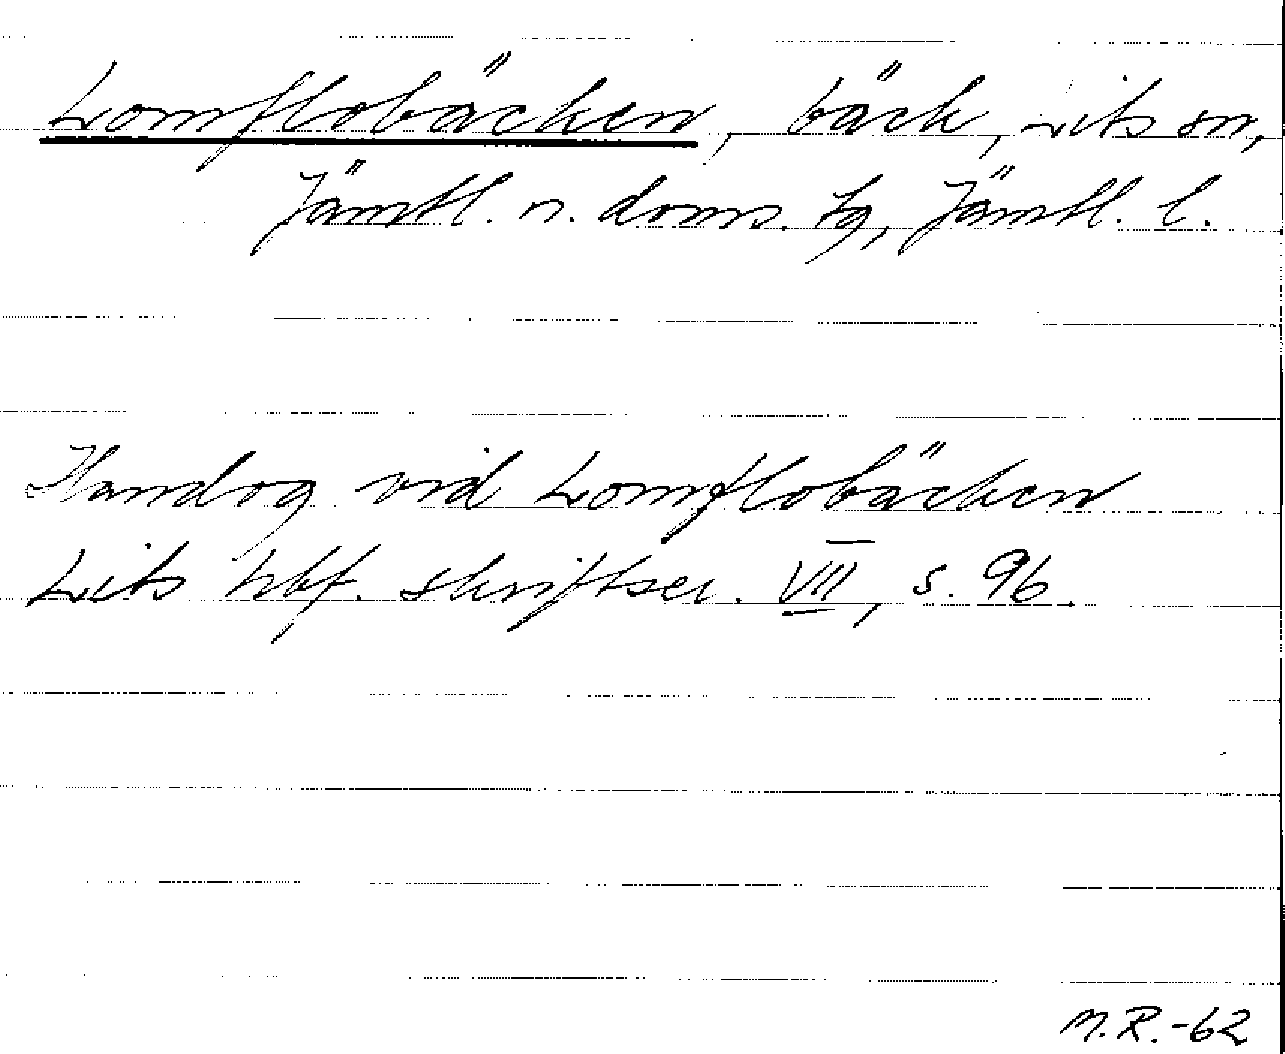 Lomflobäcken, bäck, Lits sn,
Jämtl. n. doms. tg, Jämtl. l.
Handog vid Lomflobäcken
Lits hbf. skriftser. VII, s. 96.
M.R.-62